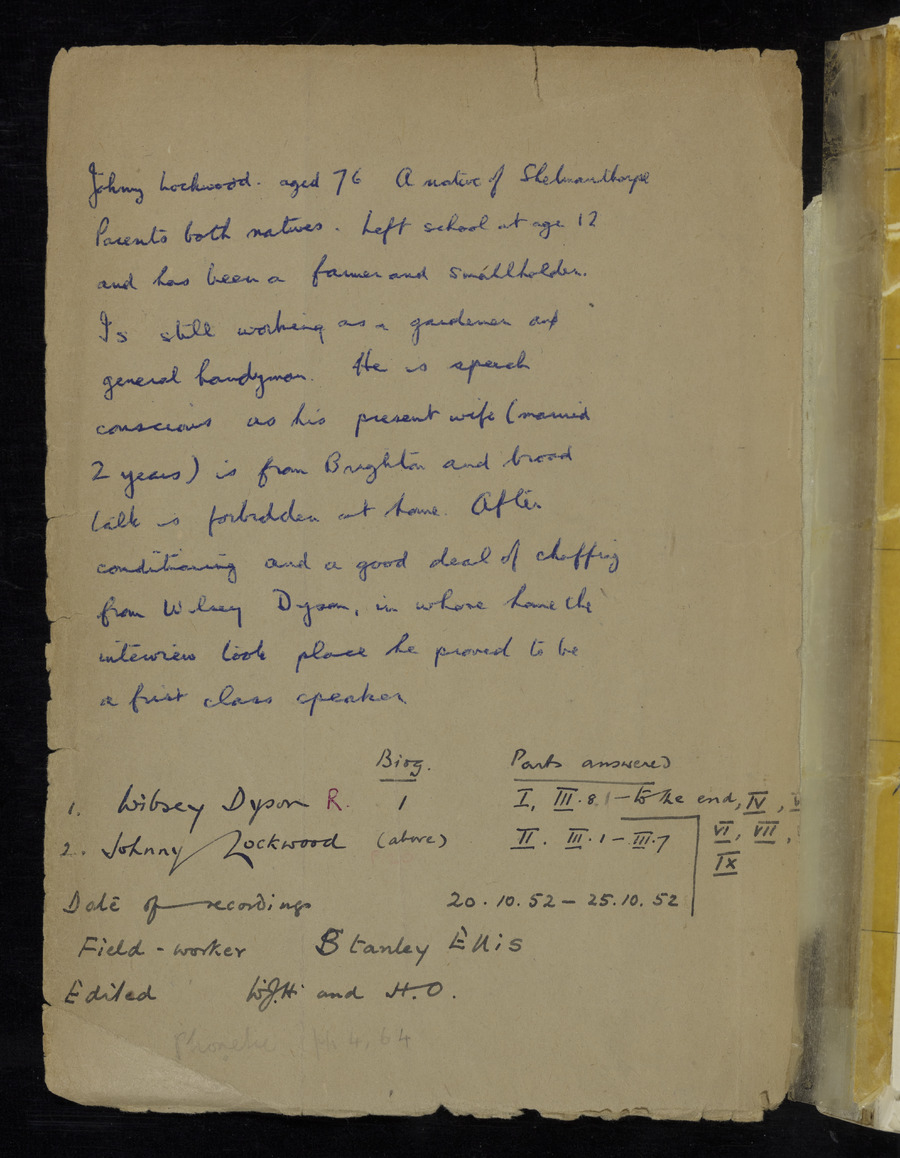 Johnny Lockwood. aged 76 A native of Skelmanthorpe
Parents both natives. Left school at age 12
and has been a farmer and smallholder.
Is still working as a gardener and
general handyman. He is speech
conscious as his present wife (married
2 years) is from Brighton and broad
talk is forbidden at home. After
conditioning and a good deal of chaffing
from Wibsey Dyson, in whose home the
interview took place he proved to be
a first class speaker
Biog. Parts answered
1. Wibsey Dyson R. 1 I, III.8.1 – to the end, IV,
2. Johnny Lockwood (above) II. III.1 – III.7 VI, VII,
IX
Date of recordings 20.10.52 – 25.10.52
Field-worker Stanley Ellis
Edited W.J.H. and H.O.
Phonetic 4, 64